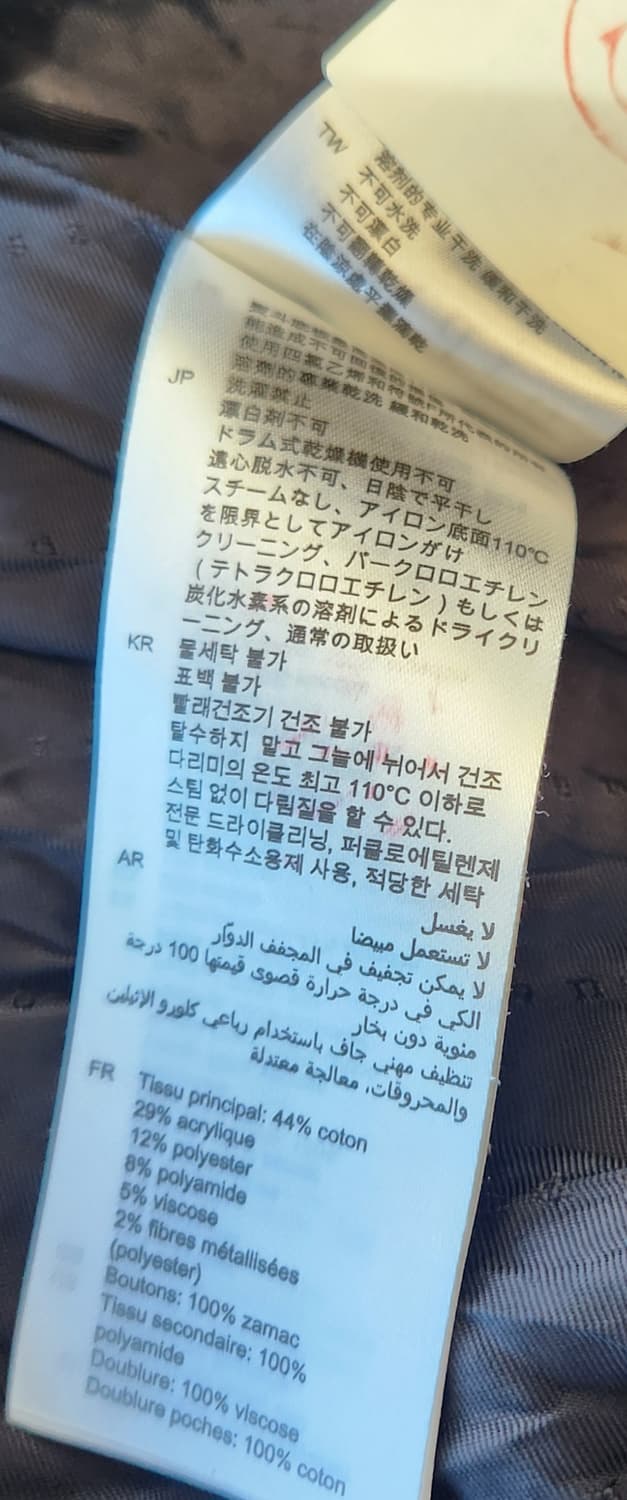 TW
溶剂的专业干洗 缓和干洗
不可水洗
不可漂白
不可翻轉乾燥
在陰涼處平攤晾乾
使用四氯乙烯和符號F所代表的所有
溶劑的專業乾洗 緩和乾洗
JP
洗濯禁止
漂白剤不可
ドラム式乾燥機使用不可
遠心脱水不可、日陰で平干し
スチームなし、アイロン底面110℃
を限界としてアイロンがけ
クリーニング、パークロロエチレン
(テトラクロロエチレン)もしくは
炭化水素系の溶剤によるドライクリ
ーニング、通常の取扱い
KR
물세탁 불가
표백 불가
빨래건조기 건조 불가
탈수하지 말고 그늘에 뉘어서 건조
다리미의 온도 최고 110℃ 이하로
스팀 없이 다림질을 할 수 있다.
전문 드라이클리닝, 퍼클로에틸렌제
및 탄화수소용제 사용, 적당한 세탁
AR
لا يغسل
لا تستعمل مبيضا
لا يمكن تجفيف في المجفف الدوّار
الكي في درجة حرارة قصوى قيمتها 100 درجة
مئوية دون بخار
تنظيف مهني جاف باستخدام رباعي كلورو الإثيلين
والمحروقات، معالجة معتدلة
FR
Tissu principal: 44% coton
29% acrylique
12% polyester
8% polyamide
5% viscose
2% fibres métallisées
(polyester)
Boutons: 100% zamac
Tissu secondaire: 100%
polyamide
Doublure: 100% viscose
Doublure poches: 100% coton